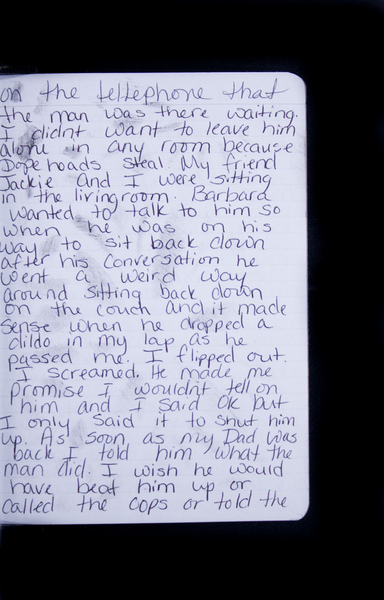 on the tellephone that
the man was there waiting.
I didnt want to leave him
alone in any room because
Dopeheads steal. My friend
Jackie and I were sitting
in the livingroom. Barbara
wanted to talk to him so
when he was on his
way to sit back down
after his conversation he
went a weird way
around sitting back down
on the couch and it made
sense when he dropped a
dildo in my lap as he
passed me. I flipped out.
I screamed. He made me
promise I wouldnt tell on
him and I said OK but
I only said it to shut him
up. As soon as my Dad was
back I told him what the
man did. I wish he would
have beat him up or
called the cops or told the